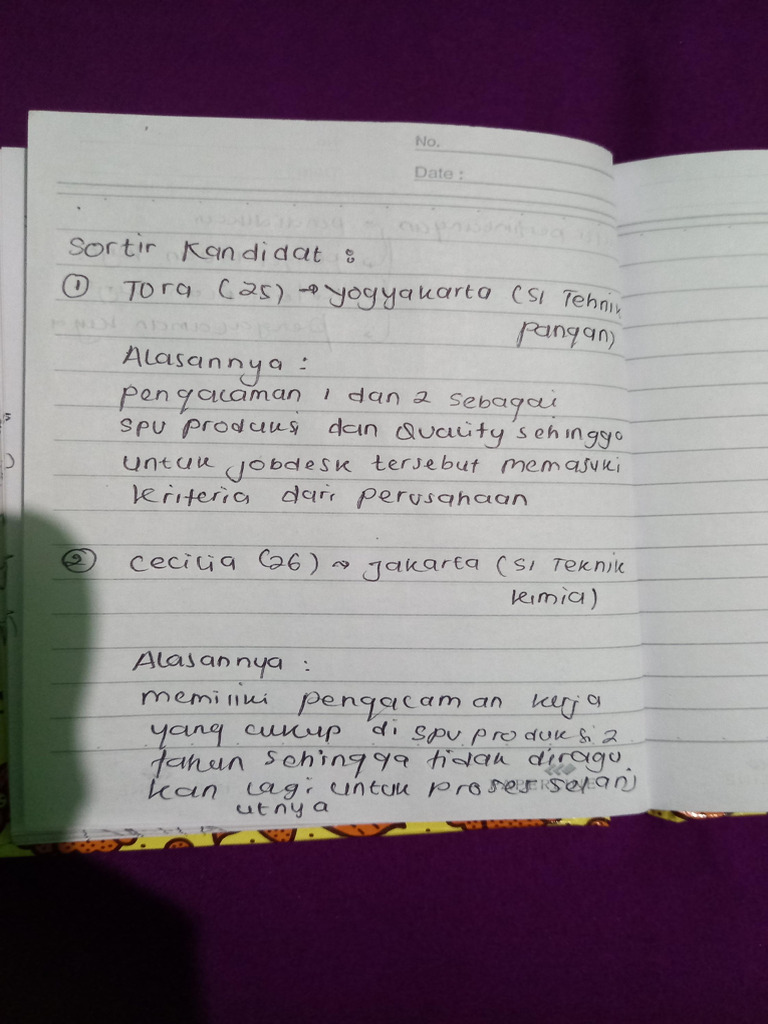 No.
Date :
Sortir Kandidat :
① Tora (25) → yogyakarta (S1 Tehnik
pangan)
Alasannya :
pengalaman 1 dan 2 sebagai
spv produksi dan Quality sehingga
untuk jobdesk tersebut memasuki
kriteria dari perusahaan
② Cecilia (26) → jakarta (S1 Teknik
kimia)
Alasannya :
memiliki pengalaman kerja
yang cukup di spv produksi 2
tahun sehingga tidak diragu
kan lagi untuk proses selanj
utnya